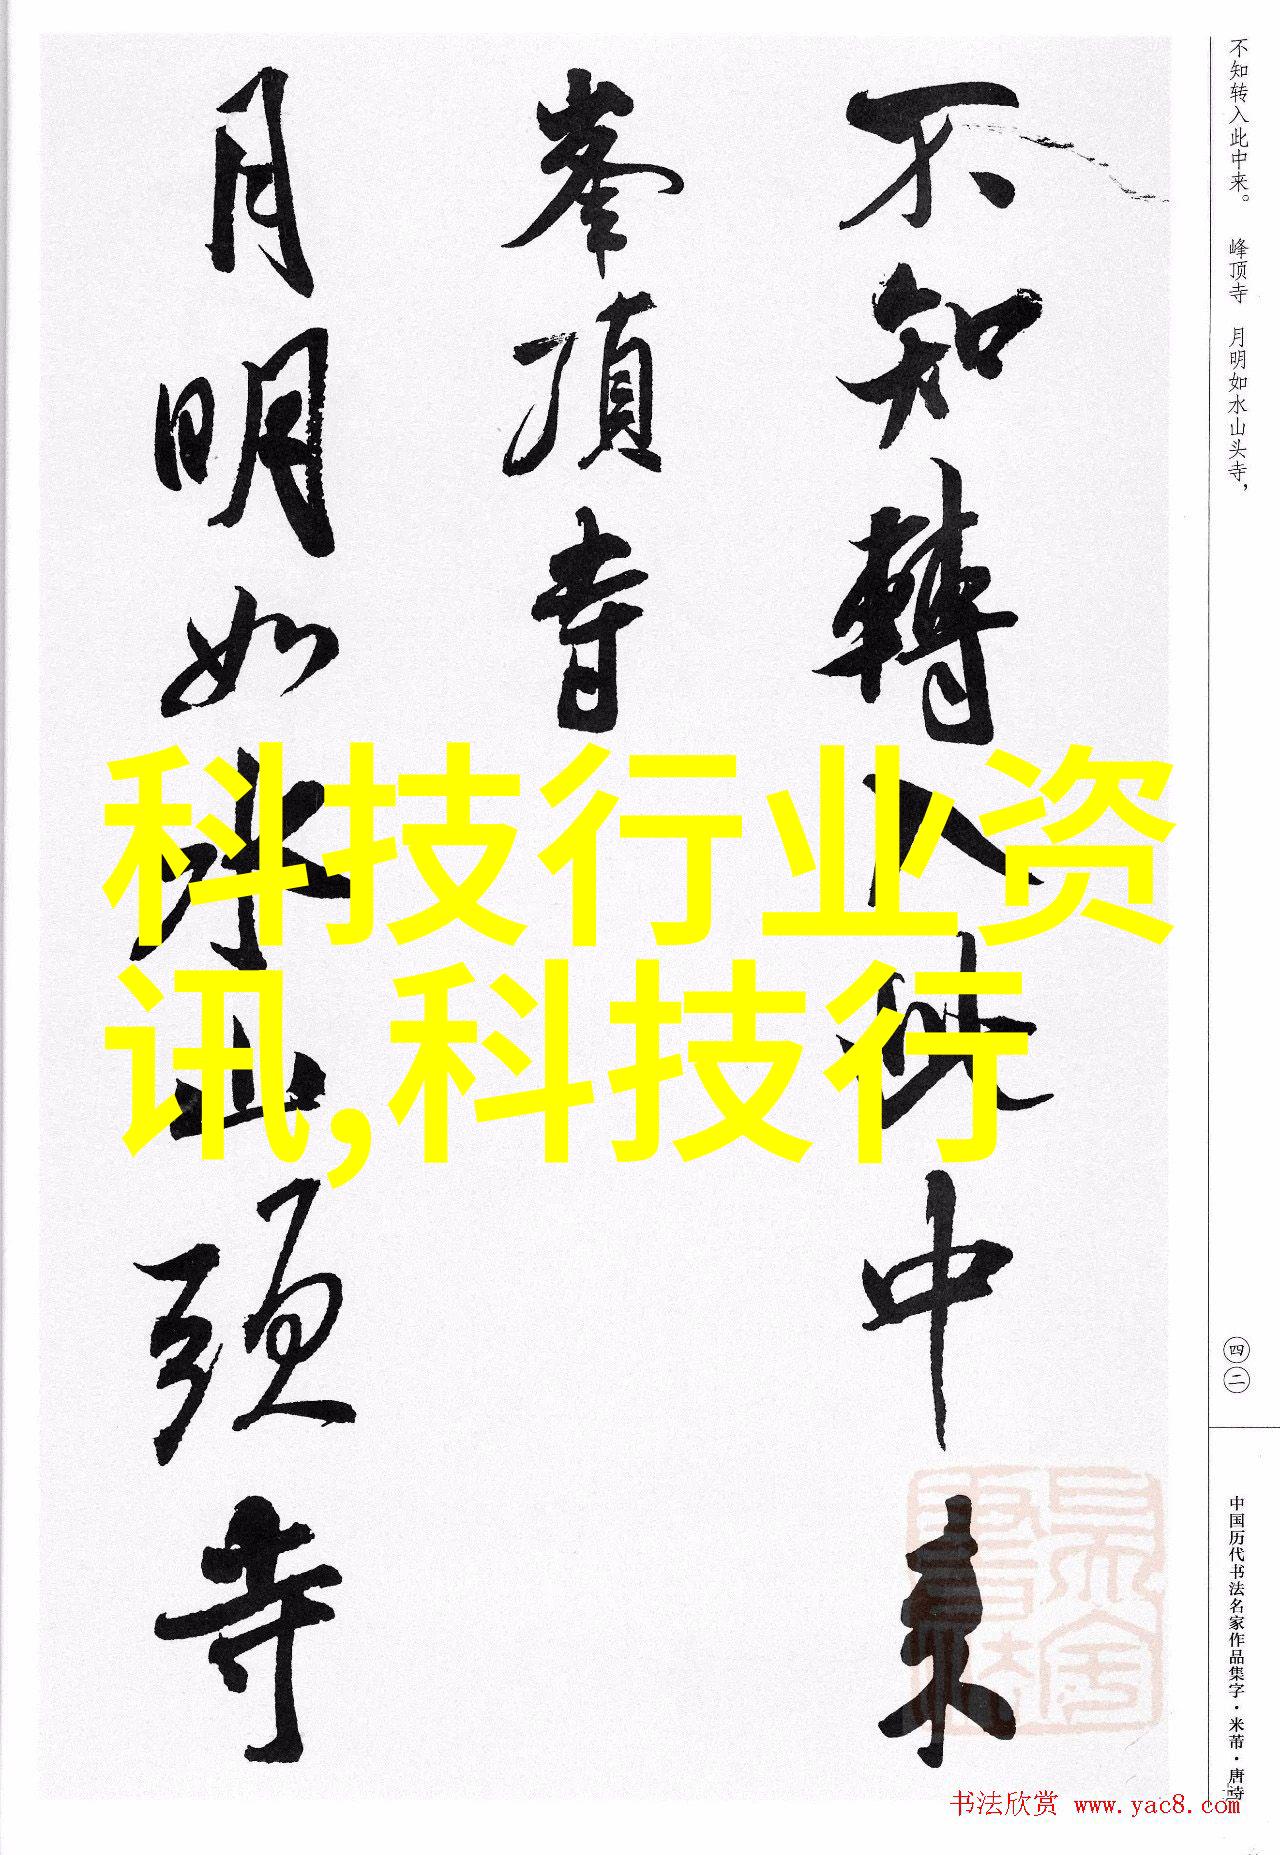 不知轉入此中来
峯頂寺
月明如水山頭寺
科技行业资
讯,科技行
不知转入此中来。 峰顶寺 月明如水山头寺，
四二
中国历代书法名家作品集字·米芾·唐诗
书法欣赏 www.yac8.com